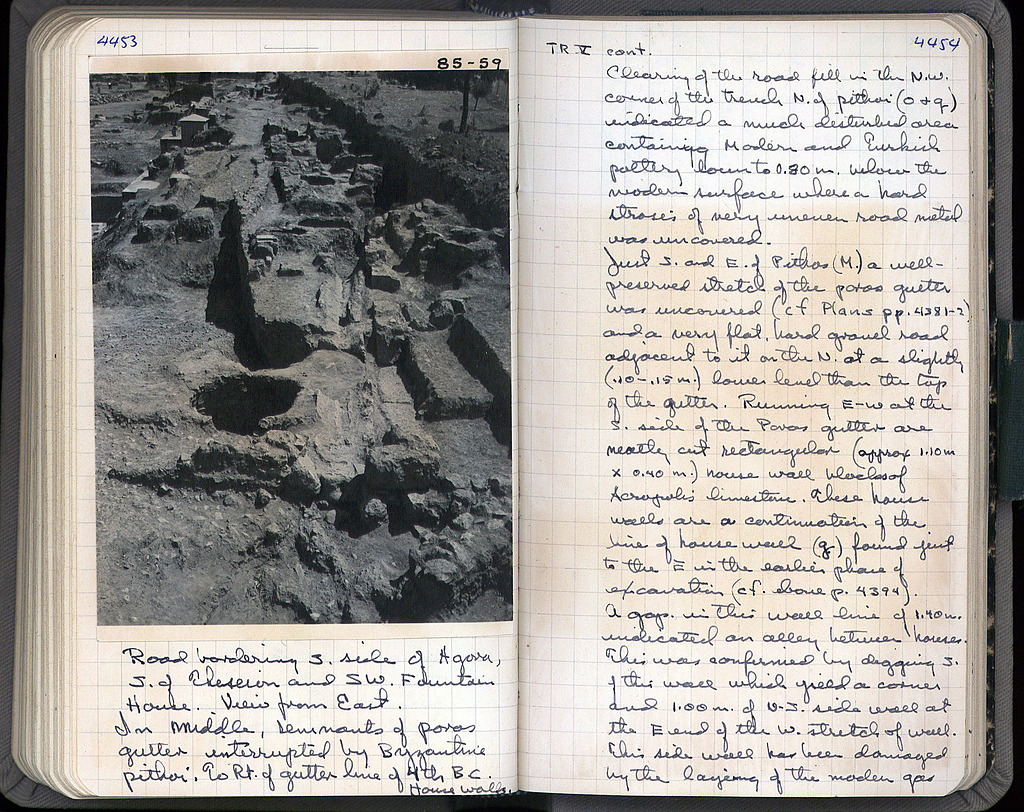 4453
85-59
Road bordering S. side of Agora,
S. of Theseion and SW. Fountain
House. View from East.
In middle, remnants of poros
gutter interrupted by Byzantine
pithoi. To Rt. of gutter line of 4th B.C.
House walls.
4454
TR. V cont.
Clearing of the road fill in the N.W.
corner of the trench N. of pithoi (O + q)
indicated a much disturbed area
containing Modern and Turkish
pottery down to 0.80 m. below the
modern surface where a hard
stroses of very uneven road metal
was uncovered.
Just S. and E. of Pithos (M.) a well-
preserved stretch of the poros gutter
was uncovered (cf Plans pp. 4381-2)
and a very flat, hard gravel road
adjacent to it on the N. at a slightly
(.10-.15 m.) lower level than the top
of the gutter. Running E-W at the
S. side of the Poros gutter are
neatly cut rectangular (approx 1.10m
x 0.40 m.) house wall blocks of
Acropolis limestone. These house
walls are a continuation of the
line of house wall (g) found just
to the E in the earlier phase of
excavation (cf. above p. 4394).
A gap in this wall line of 1.40m.
indicated an alley between houses.
This was confirmed by digging S.
of this wall which yield a corner
and 1.00 m. of N-S. side wall at
the E end of the W. stretch of wall.
This side wall has been damaged
by the laying of the modern gas